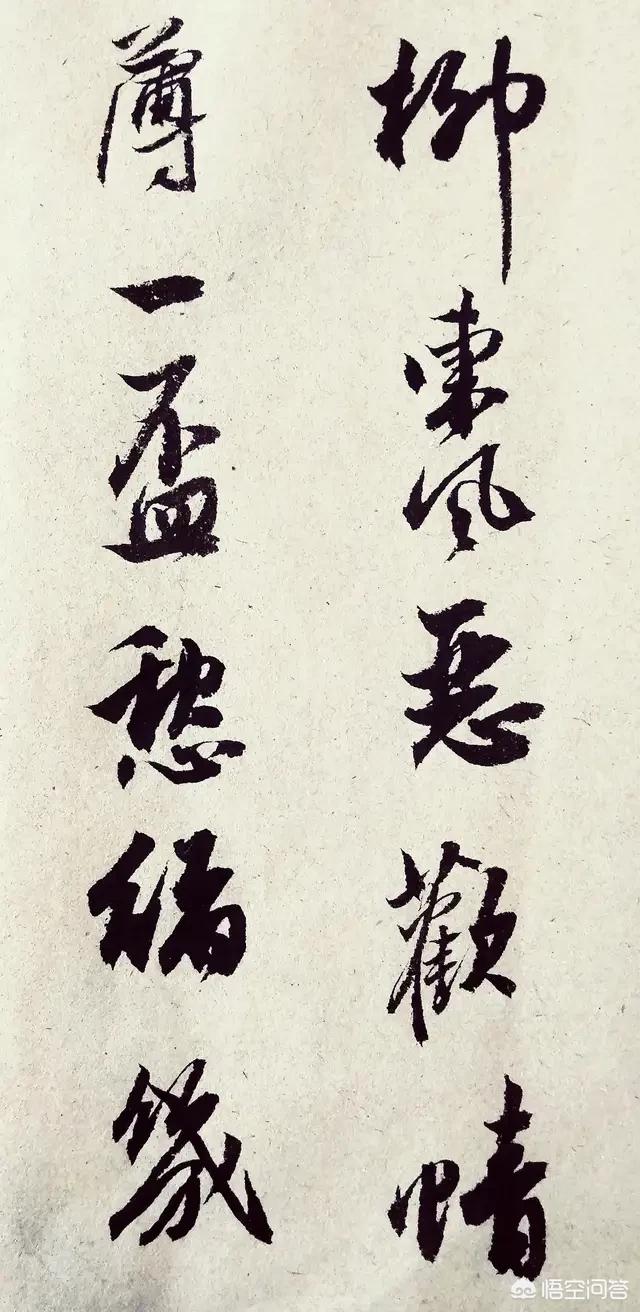 柳東風惡歡情
薄一盃愁緒幾
悟空问答